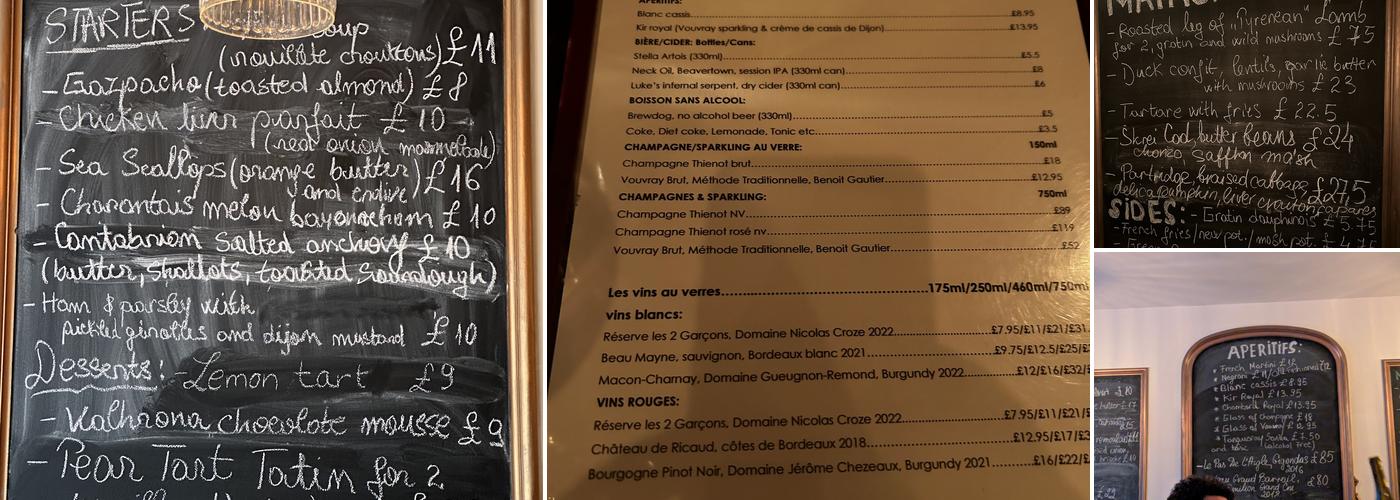 STARTERS
soup
(nouilléte chouttons) £11
- Gazpacho (toasted almond) £8
- Chicken liver parfait £10
(neat onion marmelade)
- Sea Scallops (orange butter) £16
and endive)
- Charantais melon bayonneham £10
- Cantabrian Salted anchovy £10
(butter, shallots, toasted sourdough)
- Ham & parsley with
pickled girolles and dijon mustard £10
Desserts: - Lemon tart £9
- Valhrona chocolate mousse £9
- Pear Tart Tatin for 2
APERITIFS:
Blanc cassis £8.95
Kir royal (Vouvray sparkling & crème de cassis de Dijon) £13.95
BIÈRE/CIDER: Bottles/Cans:
Stella Artois (330ml) £5.5
Neck Oil, Beavertown, session IPA (330ml can) £8
Luke's infernal serpent, dry cider (330ml can) £6
BOISSON SANS ALCOOL:
Brewdog, no alcohol beer (330ml) £5
Coke, Diet coke, Lemonade, Tonic etc. £3.5
CHAMPAGNE/SPARKLING AU VERRE: 150ml
Champagne Thienot brut £18
Vouvray Brut, Méthode Traditionnelle, Benoit Gautier £12.95
CHAMPAGNES & SPARKLING: 750ml
Champagne Thienot NV £89
Champagne Thienot rosé nv £119
Vouvray Brut, Méthode Traditionnelle, Benoit Gautier £52
Les vins au verres 175ml/250ml/460ml/750ml
vins blancs:
Réserve les 2 Garçons, Domaine Nicolas Croze 2022 £7.95/£11/£21/£31
Beau Mayne, sauvignon, Bordeaux blanc 2021 £9.75/£12.5/£25/£
Macon-Charnay, Domaine Gueugnon-Remond, Burgundy 2022 £12/£16/£32/£
VINS ROUGES:
Réserve les 2 Garçons, Domaine Nicolas Croze 2022 £7.95/£11/£21/£
Château de Ricaud, côtes de Bordeaux 2018 £12.95/£17/£3
Bourgogne Pinot Noir, Domaine Jérôme Chezeaux, Burgundy 2021 £16/£22/£
- Roasted leg of "Pyrenean" Lamb
for 2, gratin and wild mushrooms £75
- Duck confit, lentils, garlic butter
with mushrooms £23
- Tartare with frits £22.5
- Skrei Cod, butter beans £24
chorizo, saffron mash
- Partridge, braised cabbage £27,5
delica pumpkin, liver crouton
SIDES: - Gratin dauphinois £5.75
- French fries/new pot./mash pot. £4.75
APERITIFS:
* French Martini £12
* Negroni £11/Old fashioned £12
* Blanc cassis £8.95
* Kir Royal £13.95
* Chambord Royal £13.95
* Glass of Champagne £18
* Glass of Vouvray £12,95
* Tanqueray Sevilla £7.50
and tonic (alcohol free)
- Le Pas De L'Aigle, Gigondas £85
2016
£80